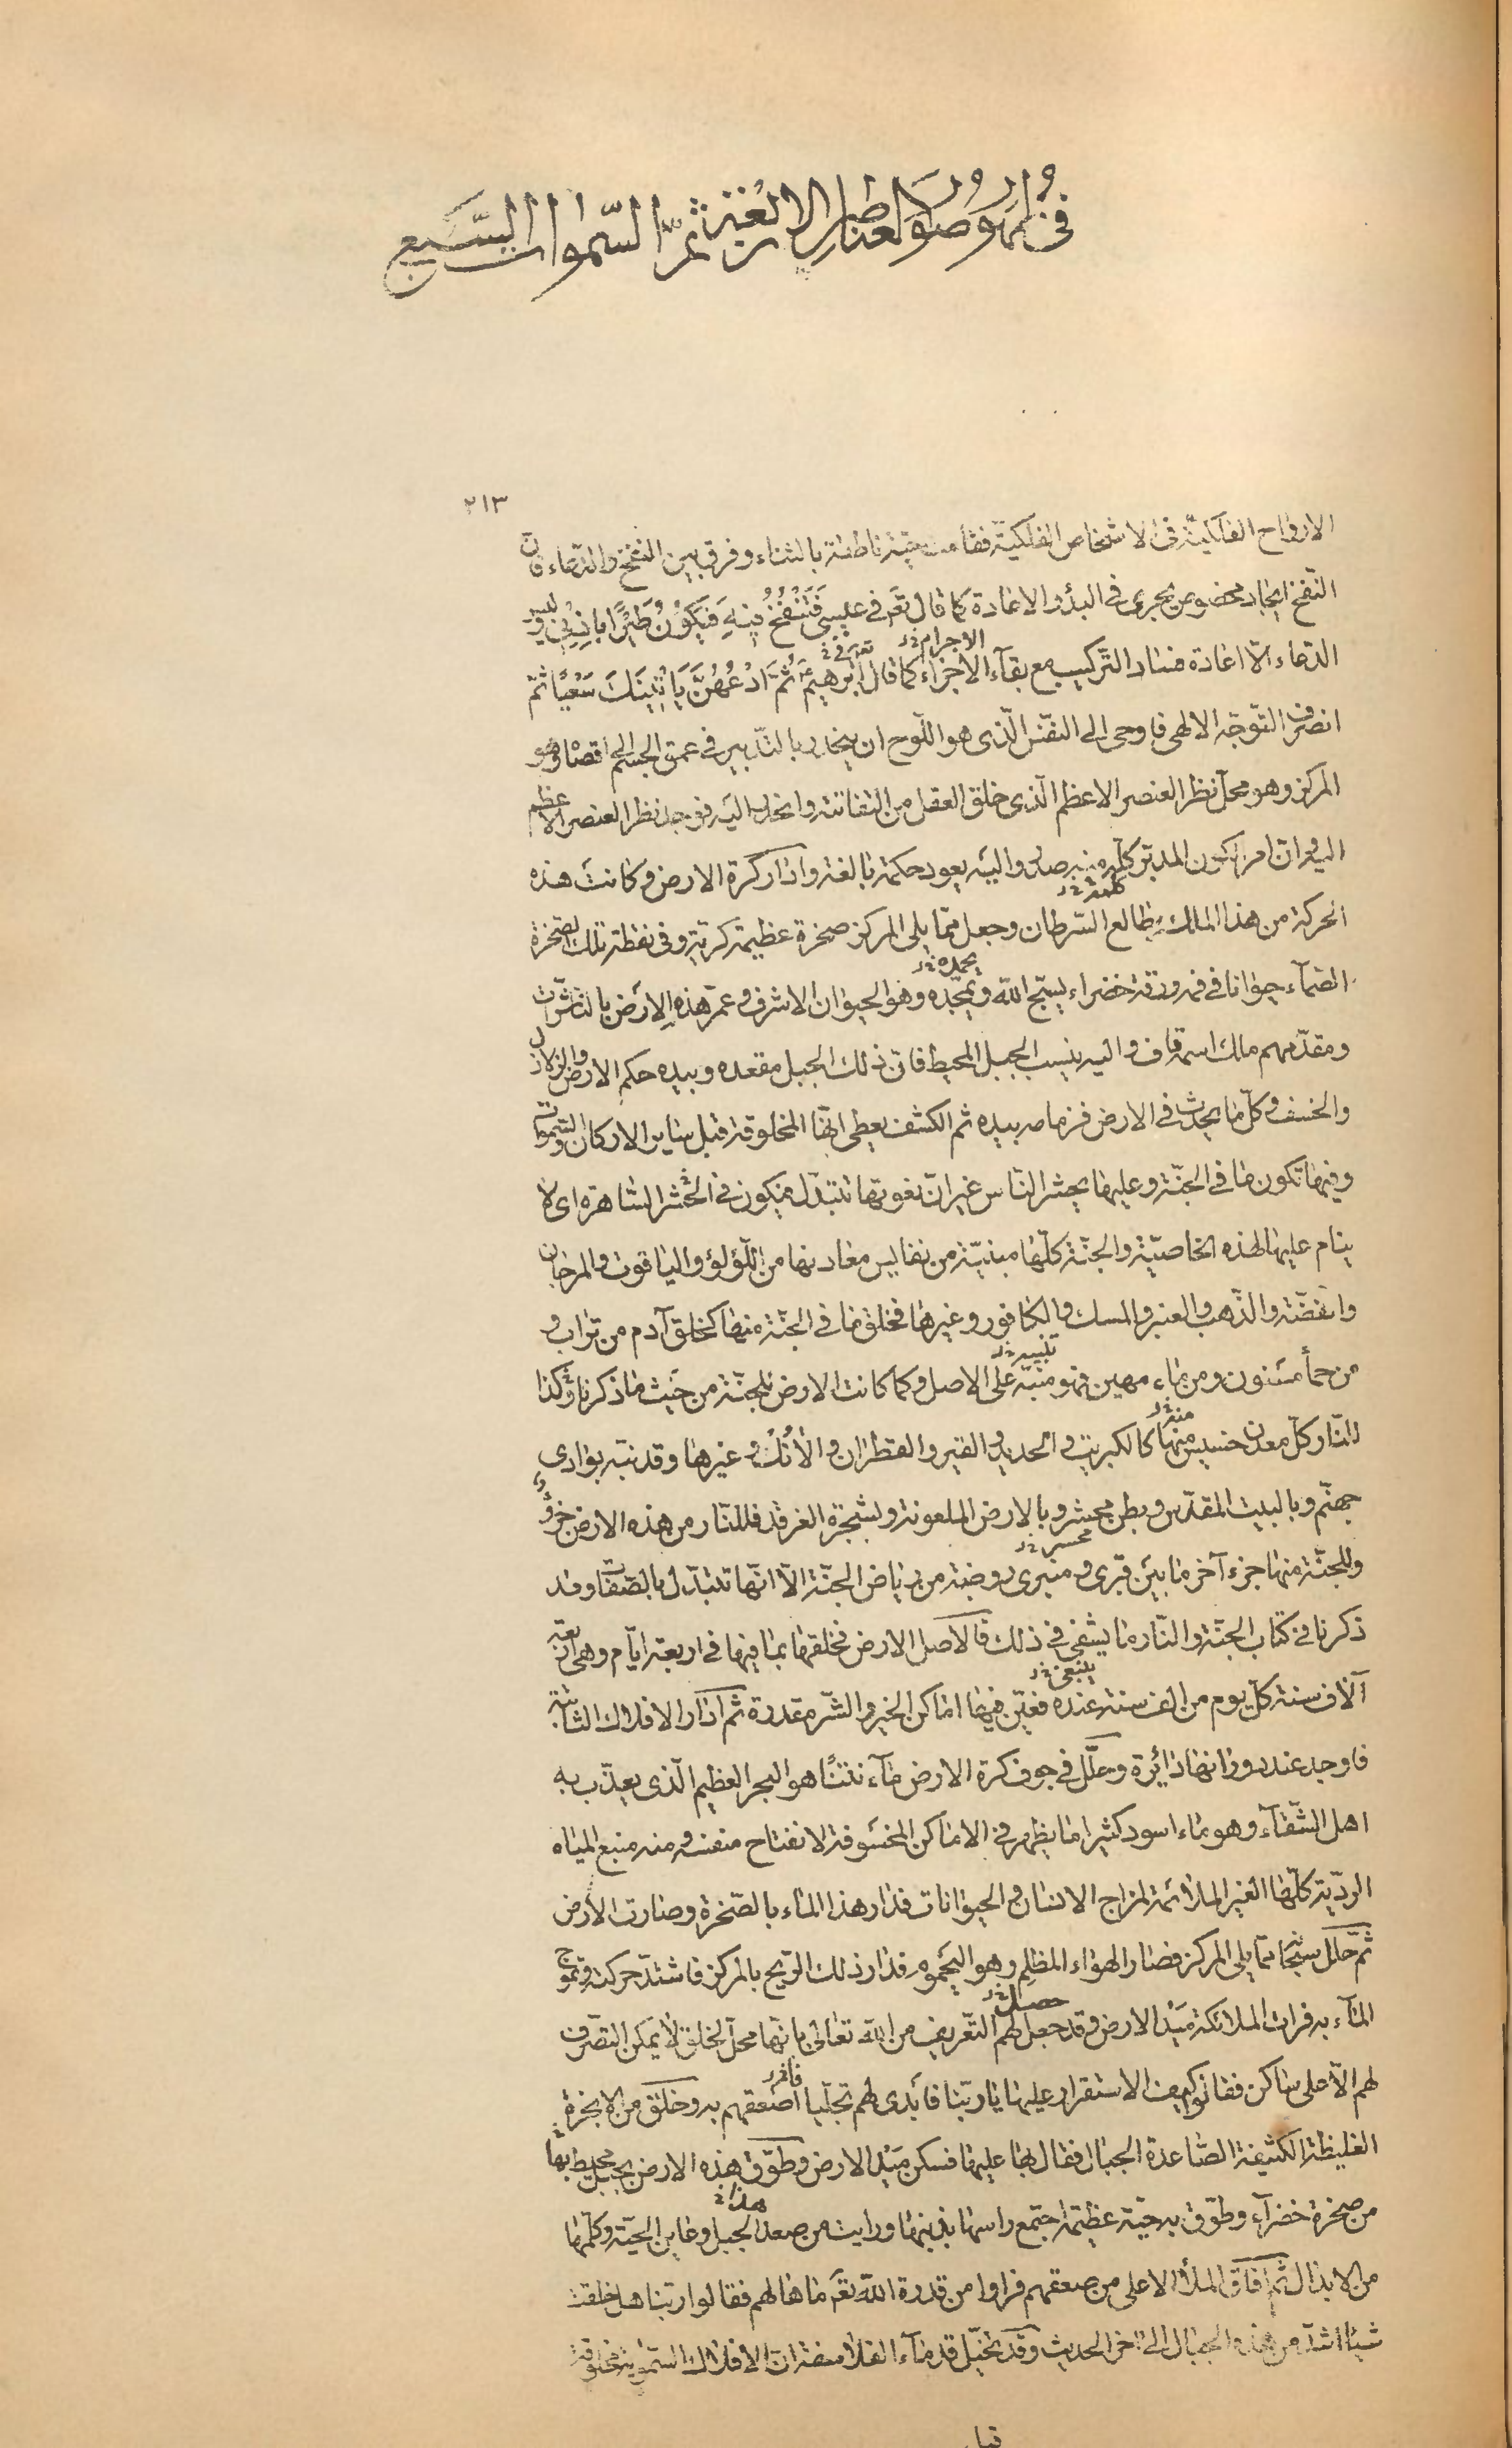 في ظهور صور العناصر الاربعة ثم السموات السبع
٢١٣
الارواح الفلكيّة فى الاشخاص الفلكيّة فقامت حيّة ناطقة بالثناء وفرق بين النفخ والدّعاء فانّ
النّفخ ايجاد مخصوص يجرى فى البدؤ والاعادة كما قال تعم فى عيسى فَتَنْفُخُ فيهِ فَيَكُوْنُ طَيْرًا بِاِذْنِي وليس
الاجرام خ ل
الدعاء الا اعادة فساد التّركيب مع بقآء الاجزاء كما قال ابرهيم ثُمَّ ادْعُهُنَّ يَاْتِينَكَ سَعْيًا ثمّ
انصرف التّوجّه الالهى فاوحى الى النفس الّذى هو اللّوح ان ينحدر بالتّدبير فى عمق الجسم الى اقصاه وهو
المركز وهو محلّ نظر العنصر الاعظم الّذى خلق العقل من التفاتته وانحدر اليه فوجد نظر العنصر الاعظم
اليه وانّ امر الكون المدبّر كلّه منه صدر واليه يعود حكمة بالغة وادار كرة الارض وكانت هذه
كلمة خ ل
الحركة من هذا الملك بطالع السّرطان وجعل ممّا يلى المركز صخرة عظيمة كريّة وفى نقطة تلك الصّخرة
يحمده خ ل
الصّمآء حيوانا فى فمه ورقة خضراء يسبّح اللّه ويمجّده وهو الحيوان الاشرف وعمّر هذه الارض بالناشرات
ومقدّمهم مالك اسمه قاف واليه ينسب الجبل المحيط فانّ ذلك الجبل مقعده وبيده حكم الارض والزلازل
والخسف وكلّ ما يحدث فى الارض فزمامه بيده ثم الكشف يعطى انّها المخلوقة قبل ساير الاركان والسّموات
وفيها تكون ما فى الجنّة وعليها يحشر النّاس غير انّ نعوتها تتبدّل فيكون فى الحشر السّاهرة اى لا
ينام عليها لهذه الخاصيّة والجنّة كلّها مبنيّة من نفايس معادنها من اللّؤلؤ والياقوت والمرجان
والفضّة والذّهب والعنبر والمسك والكافور وغيرها فخلق ما فى الجنّة منها كخلق آدم من تراب و
تنبيه خ ل
من حمأ مسنون ومن ماء مهين فهو منبّه على الاصل وكما كانت الارض للجنّة من حيث ما ذكرنا وكذا
منه خ ل
للنّار كلّ معدن خسيس منها كالكبريت والحديد والقير والقطران والأنُك وغيرها وقد نبّه بوادى
جهنّم وبالبيت المقدّس وبطن محشر وبالارض الملعونة وبشجرة الغرقد فللنّار من هذه الارض جزؤ
محسر خ ل
وللجنّة منها جزء آخر ما بين قبرى ومنبرى روضة من رياض الجنّة الّا انّها تتبدّل بالصّفات وقد
ذكرنا فى كتاب الجنّة والنّار ما يشفى فى ذلك فالاصل الارض فخلقها بما فيها فى اربعة ايّام وهى اربعة
ينبغى خ ل
آلاف سنة كلّ يوم من الف سنة عنده فعيّن فيها اماكن الخير والشّر مقدرة ثم ادار الافلاك الثابتة
فاوجد عند دورانها دائرة وحلّل فى جوف كرة الارض مآء نتنًا هو البحر العظيم الّذى يعذّب به
اهل الشّقآء وهو ماء اسود كثيرا ما يظهر فى الاماكن المخسوفة لانفتاح منفسه ومنه منبع المياه
الرديّة كلّها الغير الملائمة لمزاج الانسان والحيوانات فدار هذا الماء بالصّخرة وصارت الارض
ثمّ حلّل سبحانه ممّا يلى المركز فصار الهواء المظلم وهو اليحموم فدار ذلك الرّيح بالمركز فاشتدّ حركته وتموّج
حصل خ ل
المآء به فرات الملائكة مَيْد الارض وقد جعل لهم التّعريف من اللّه تعالى بانّها محلّ لخلق لا يمكن التصّرف
لهم الّا على ساكن فقالوا كيف الاستقرار عليها يا ربّنا فابدى لهم تجلّيا اصعقهم به وخلق من الابخرة
الغليظة الكثيفة الصّاعدة الجبال فقال بها عليها فسكن مَيْد الارض وطوّق هذه الارض بجبل محيط بها
هذا خ
من صخرة خضرآء وطوّق به حيّة عظيمة اجتمع راسها بذنبها ورايت من صعد الجبل وعاين الحيّة وكلّمها
من الابدال ثمّ افاق الملأ الاعلى من صعقهم فراوا من قدرة اللّه تعم ما هالهم فقالوا ربّنا هل خلقت
شيئا اشدّ من هذه الجبال الى اخر الحديث وقد تخيّل قدمآء الفلاسفة انّ الافلاك السّمويّة مخلوقة
قبل